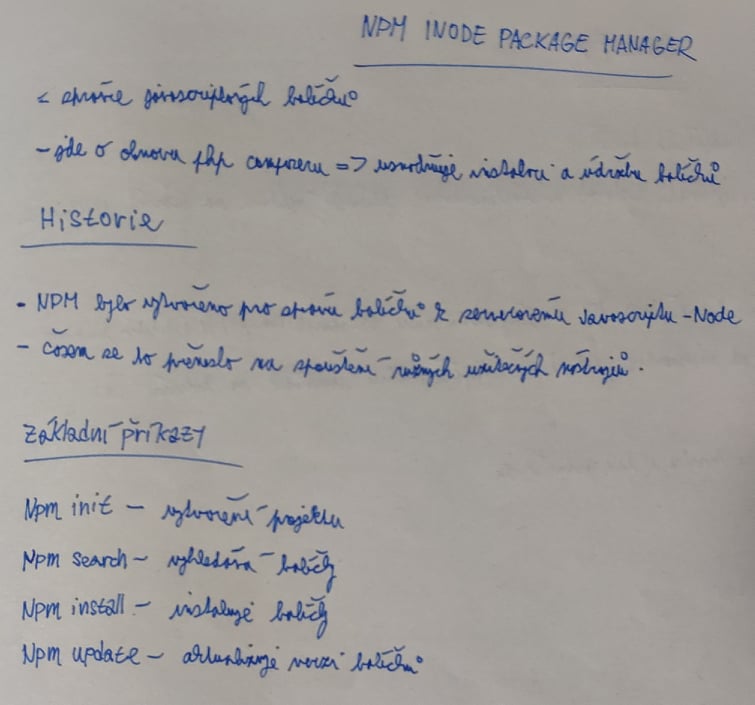 NPM INODE PACKAGE MANAGER
- správce javascriptových balíčků
- jde o obnovu php composeru => usnadňuje instalaci a údržbu balíčků
Historie
- NPM bylo vytvořeno pro správu balíčků k serverovému Javascriptu - Node
- časem se to přeneslo na spouštění různých užitečných nástrojů.
Základní příkazy
Npm init - vytvoření projektu
Npm search - vyhledává balíčky
Npm install - instaluje balíčky
Npm update - aktualizuje verzi balíčků